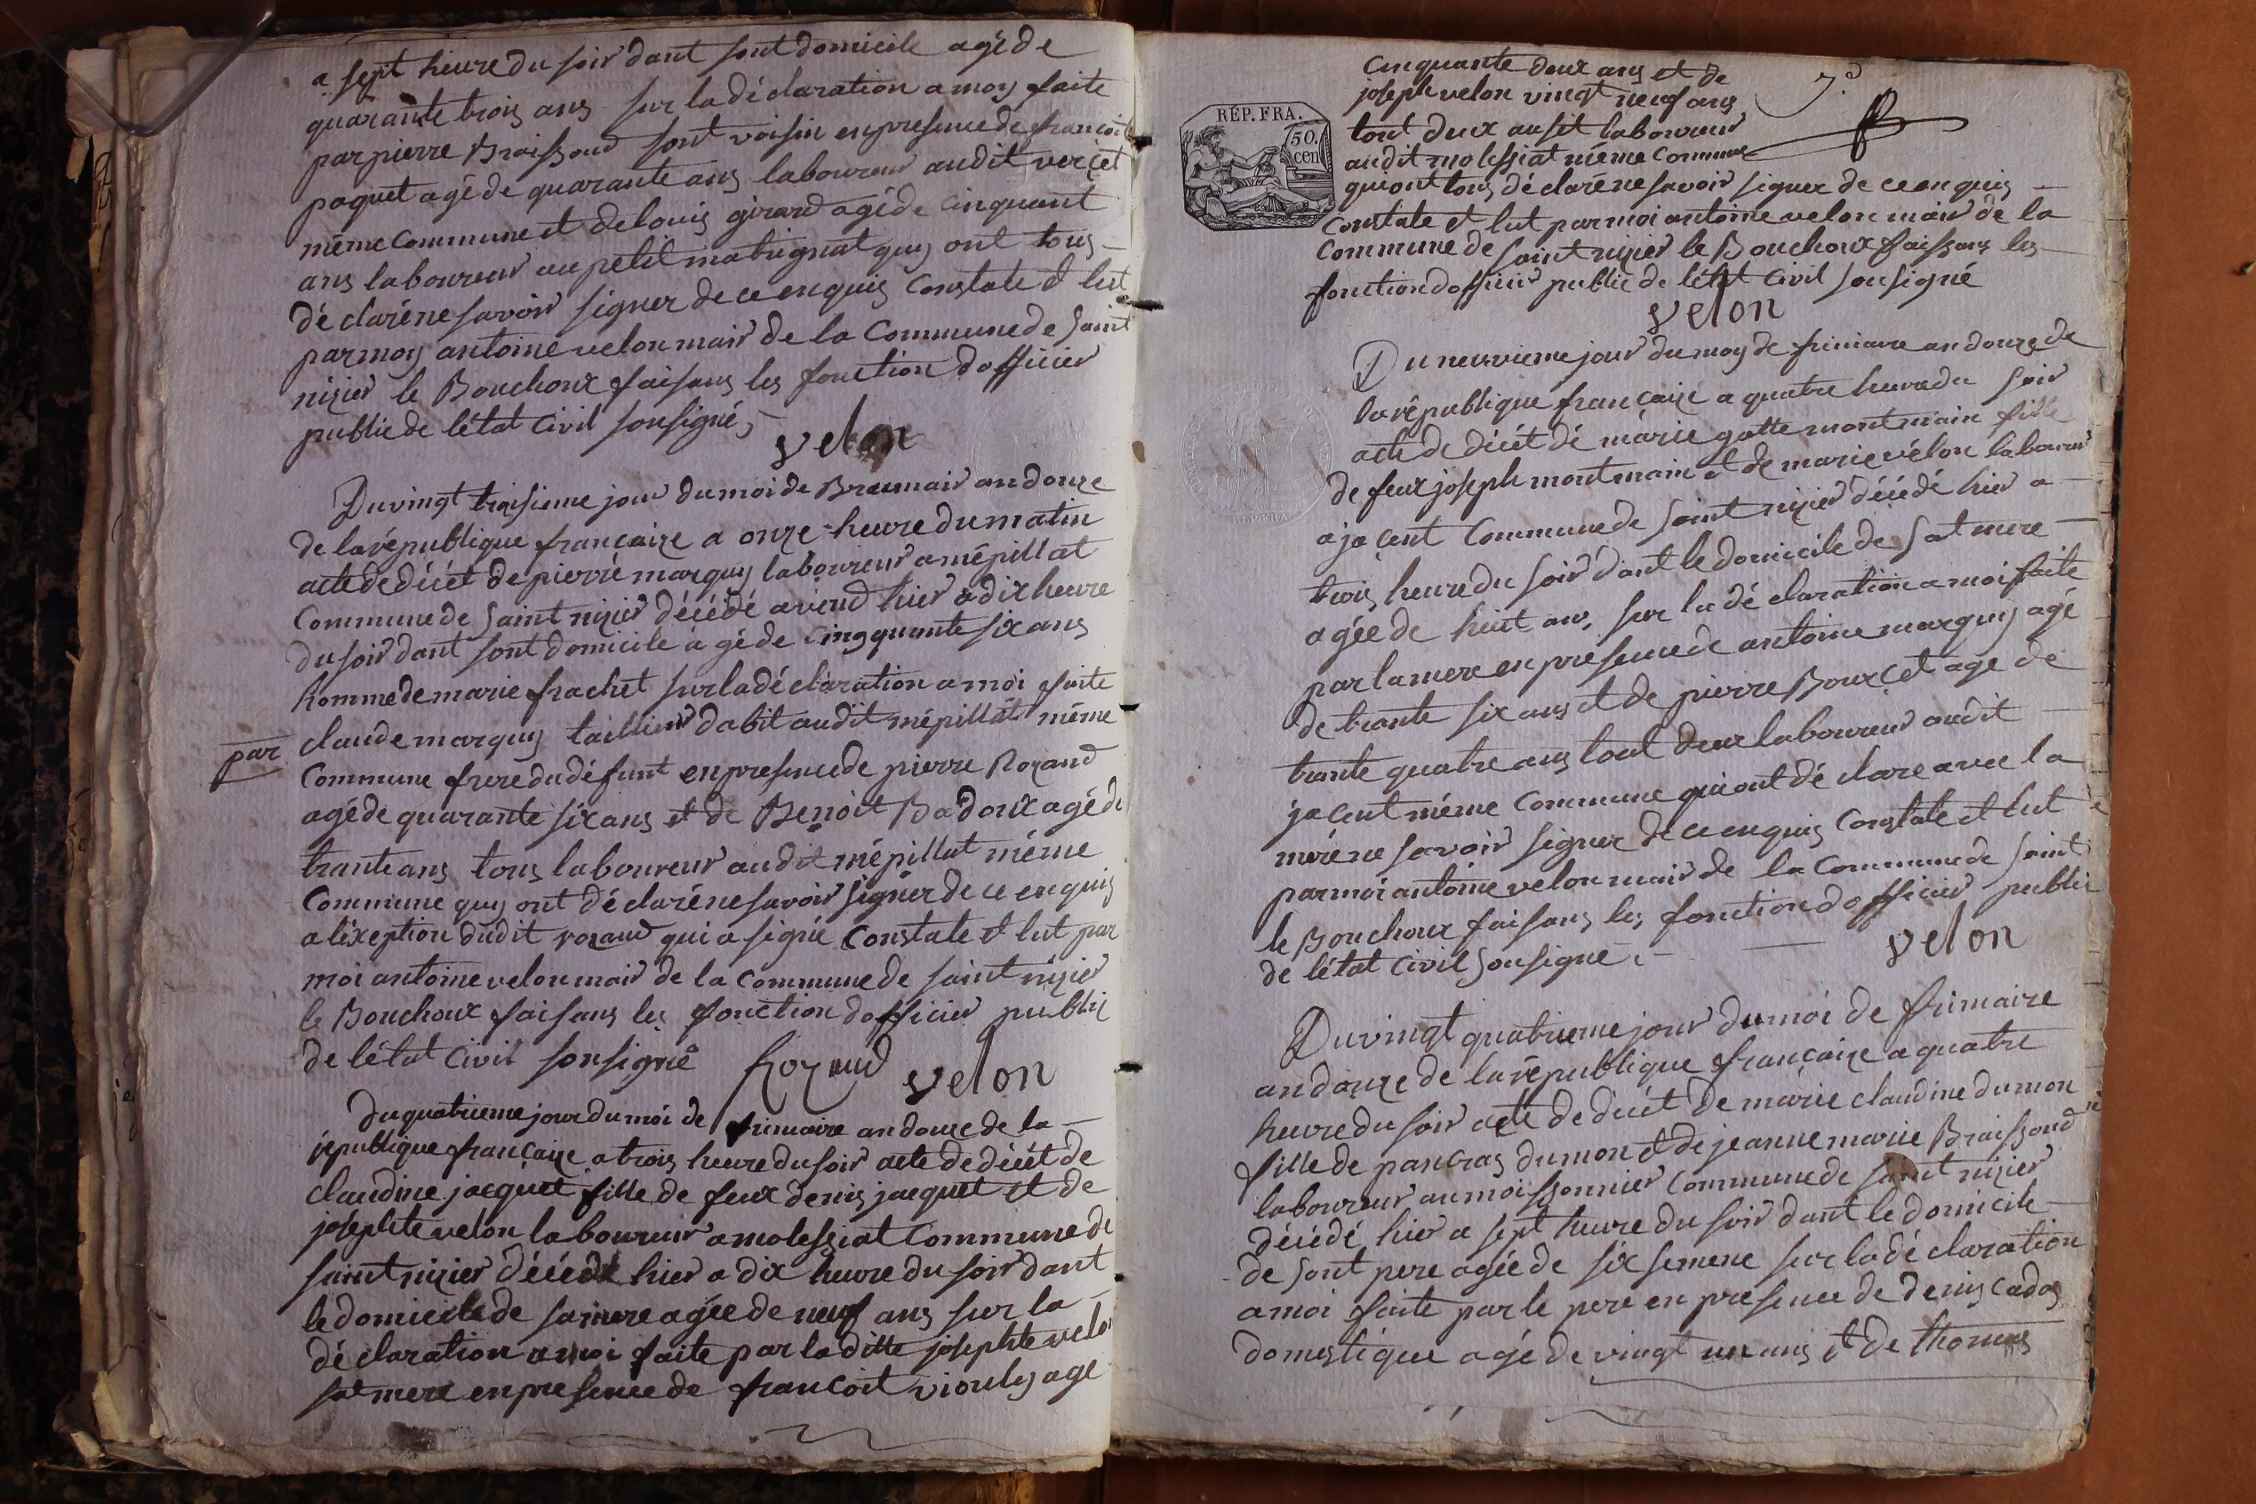 a sept heure du soir dant sont domicile agé de
quarante trois ans sur la déclaration a moy faite
par pierre Braissoud sont voisin en presence de francoit
paquet agé de quarante ans laboureur audit verçet
même commune et de louis girard agé de cinquant
ans laboureur au petit matrignat quy ont tous
déclaré ne savoir signer de ce enquis Constate et lut
par moy antoine velon mair de la Commune de saint
nizier le Bouchoux faisans les fonction dofficier
public de létat Civil sousigné,
velon
Du vingt troisieme jour du moi de Breumair an douze
de la république françaize a onze heure du matin
acte de décét de pierre marguy laboureur a mépillat
Commune de saint nizier décédé avieud hier a dix heure
du soir dant sont domicile agé de cinqquante six ans
homme de marie frachet sur la déclaration a moi faite
par claude marguy taillieur dabit audit mépillat même
Commune frere du défunt en presence de pierre Rozand
agé de quarante six ans et de Benoit Badoux agé de
trante ans tous laboureur audit mépillat même
Commune quy ont déclaré ne savoir signer de ce enquis
a lexeption dudit rozand qui a signé Constate et lut par
moi antoine velon mair de la commune de saint nizier
le Bouchoux faisans les fonction dofficier public
de létat Civil sousigné Rozand velon
Du quatrieme jour du moi de frimaire an douze de la
république françaize a trois heure du soir acte de décét de
claudine jacquet fille de feux denis jacquet et de
josephte velon laboureur a molessiat Commune de
saint nizier décédé hier a dix heure du soir dant
le domicile de sa mere agée de neuf ans sur la
déclaration a moi faite par la ditte josephte velon
sat mere en presence de francoit viouly agé
cinquante deux ans et de
joseph velon vingt neuf ans
tout deux ausit laboureur
audit molessiat même commune
qui ont tous déclaré ne savoir signer de ce enquis
Constate et lut par moi antoine velon mair de la
Commune de saint nizier le Bouchoux faissans les
fonction dofficier public de létat Civil sousigné
velon
7.e
RÉP. FRA.
50.
cen
Du neuvieme jour du moy de frimaire an douze de
la république françaize a quatre heure du soir
acte de décét de marie gotte montmain fille
de feux joseph montmain et de marie vélon laboureur
a jaçent Commune de saint nizier décédé hier a
trois heure du soir dant le domicile de sat mere
agée de huit ans, sur la déclaration a moi faite
par la mere en presence de antoine marguy agé
de trante six ans et de pierre Bourçet age de
trante quatre ans tout deux laboureur audit
jacent même Commune qui ont déclare avec la
mere ne savoir signer de ce enquis Constate et lut
par moi antoine velon mair de la Commune de saint
le Bouchoux faisans les fonction dofficier public
de létat Civil sousigné velon
Du vingt quatrieme jour du moi de frimaire
an douze de la république françaize a quatre
heure du soir acte de décét de marie claudine dumon
fille de pancras dumon et de jeanne marie Braissoud
laboureur au moissonnier Commune de saint nizier
décédé hier a sept heure du soir dant le domicile
de sont pere agée de six semene sur la déclaration
a moi faite par le pere en presence de denis cadoz
domestique agé de vingt un ans et de thomas